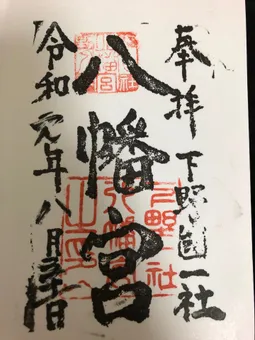 奉拝 下野國一社
八幡宮
令和元年八月日